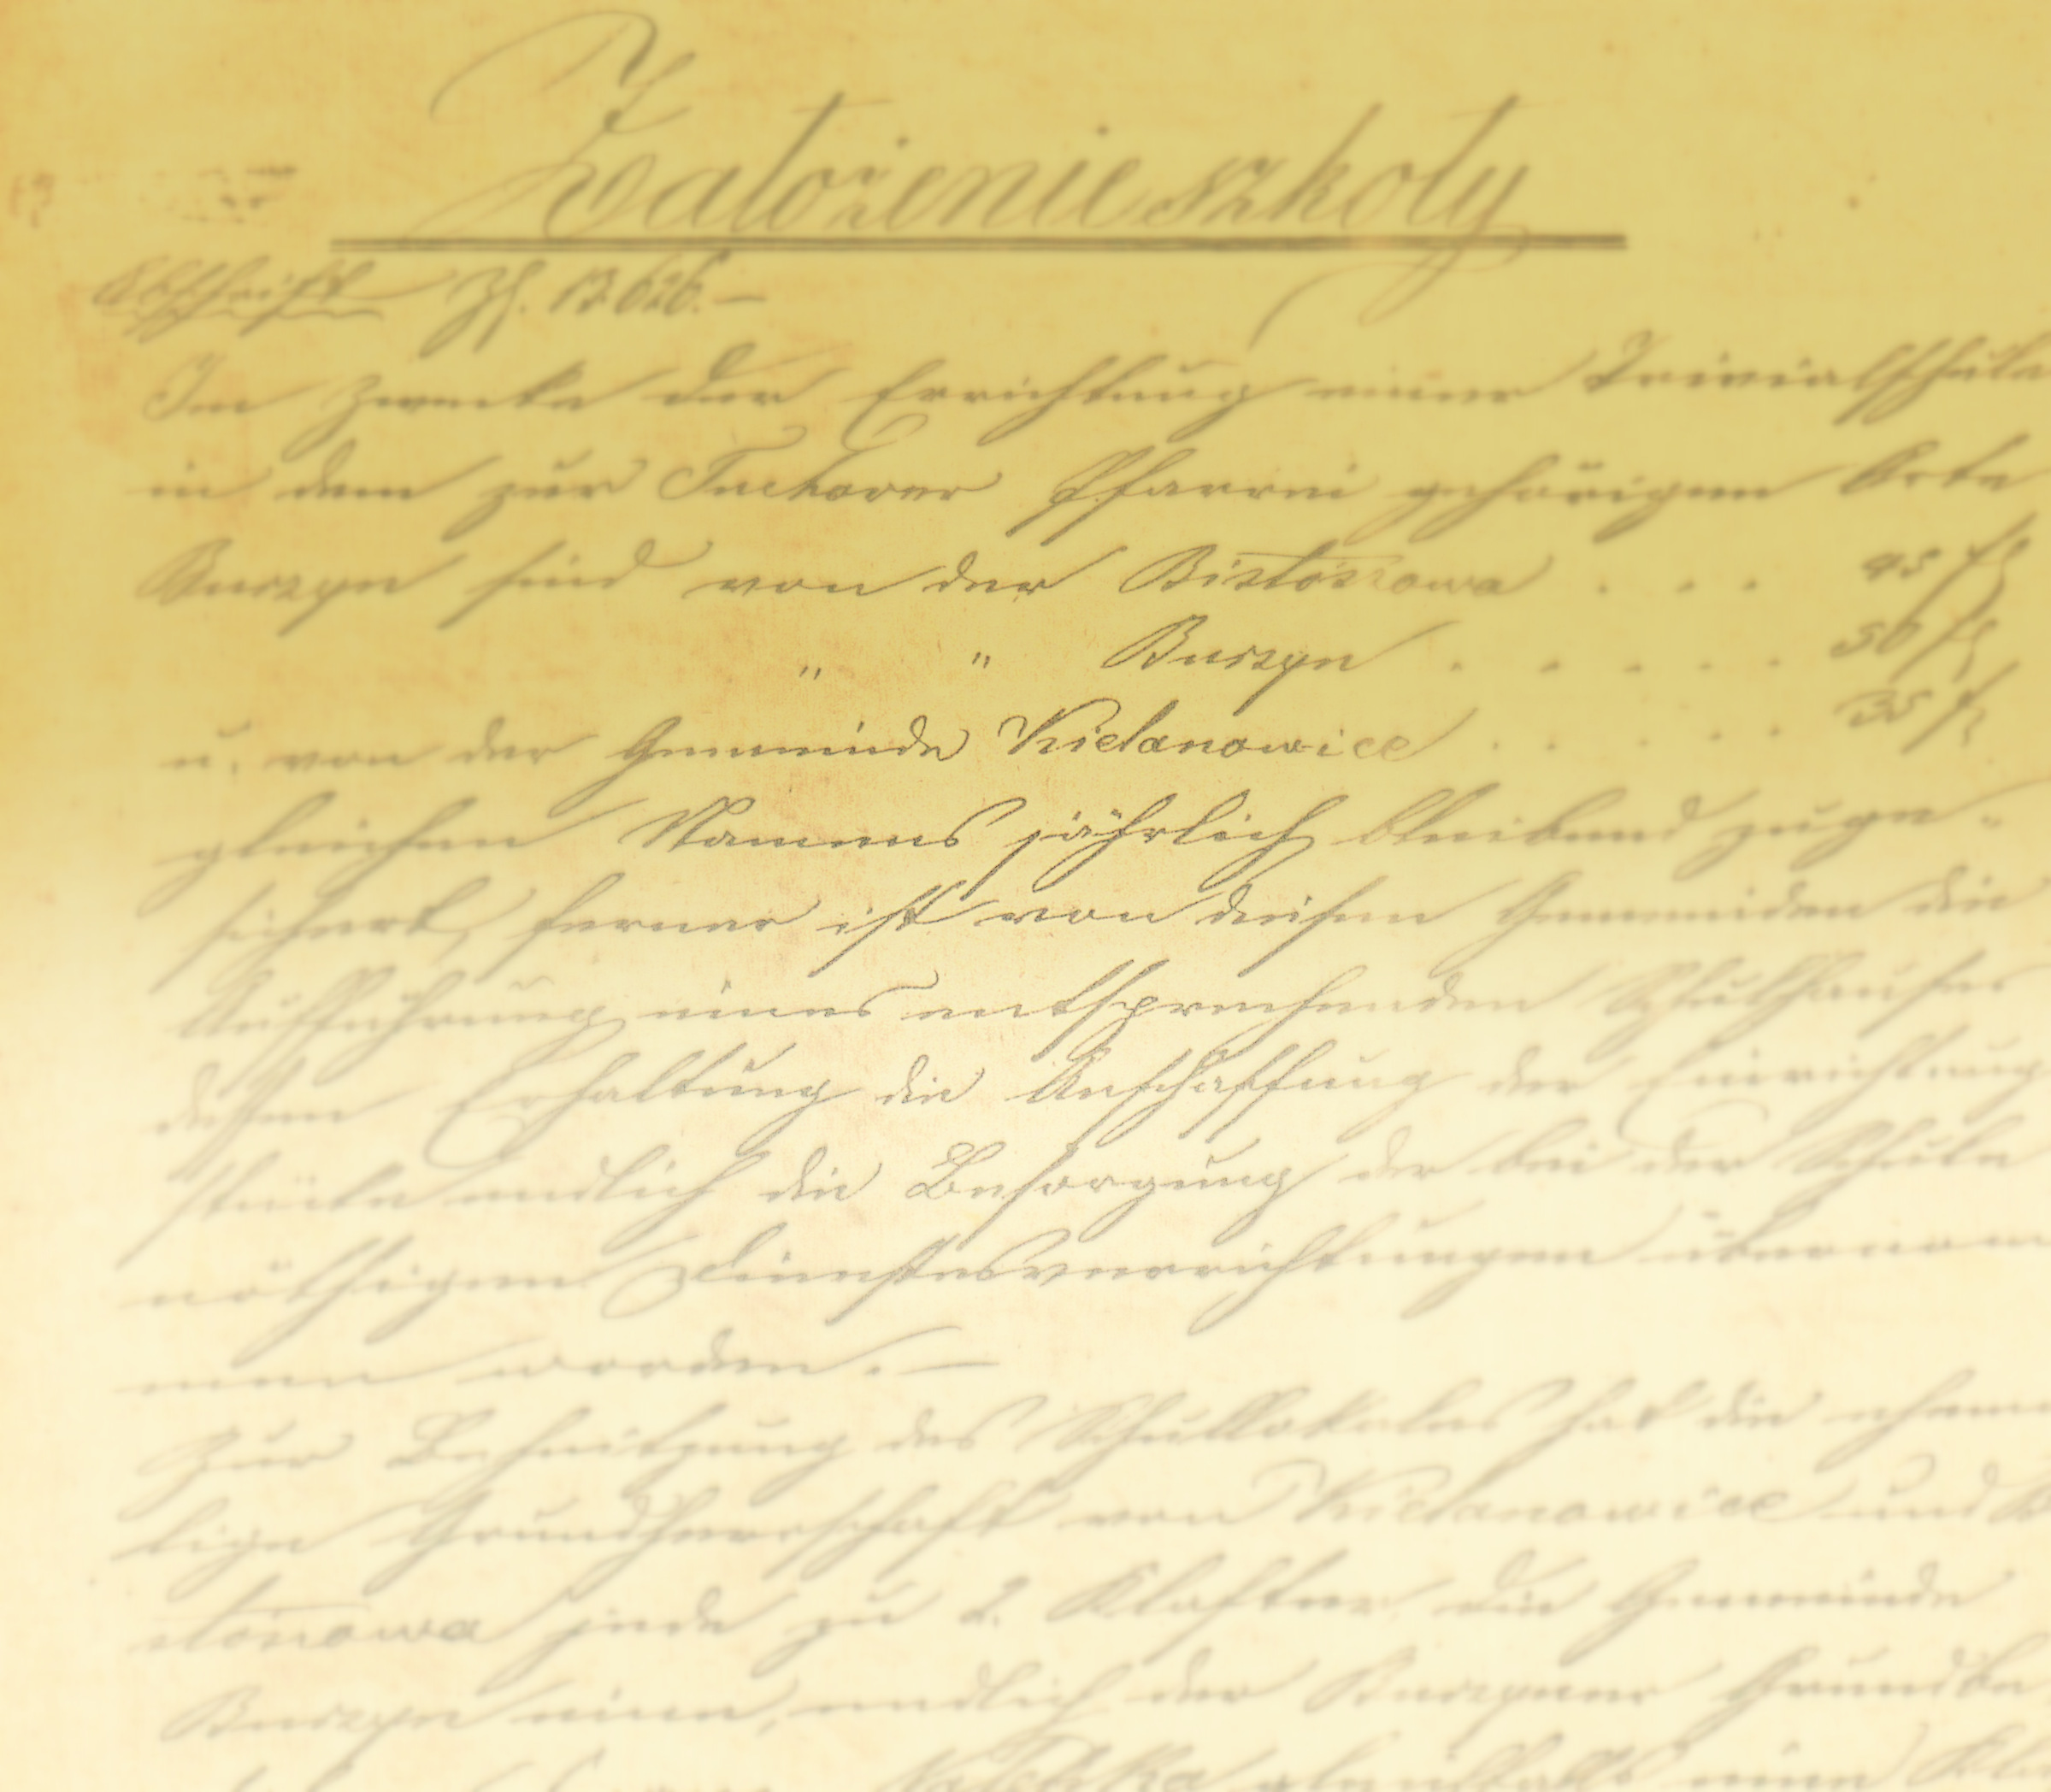 Założenie szkoły
Abschrift Zl. 13626.—
Im Zwecke der Errichtung einer Trivialschule
in dem zur Tuchover Pfarrei gehörigen Orte
Burzyn sind von der Bistoszowa . . . 45 fl
" " Burzyn . . . . . 50 fl
u. von der Gemeinde Kielanowice . . . . . 35 fl
gleichen Namens jährlich bleibend zuge-
sichert, ferner ist von diesen Gemeinden die
Aufführung eines entsprechenden Schulhauses
dessen Erhaltung die Anschaffung der Einrichtung
stücke endlich die Besorgung der bei der Schule
nöthigen Dienstesverrichtungen übernom
men worden.—
Zur Beheitzung des Schullokales hat die ehema
lige Grundherrschaft von Kielanowice und
jede zu 2. Klafter die Gemeinde
Burzyn eine, endlich der Burzyner Grundbe
eine